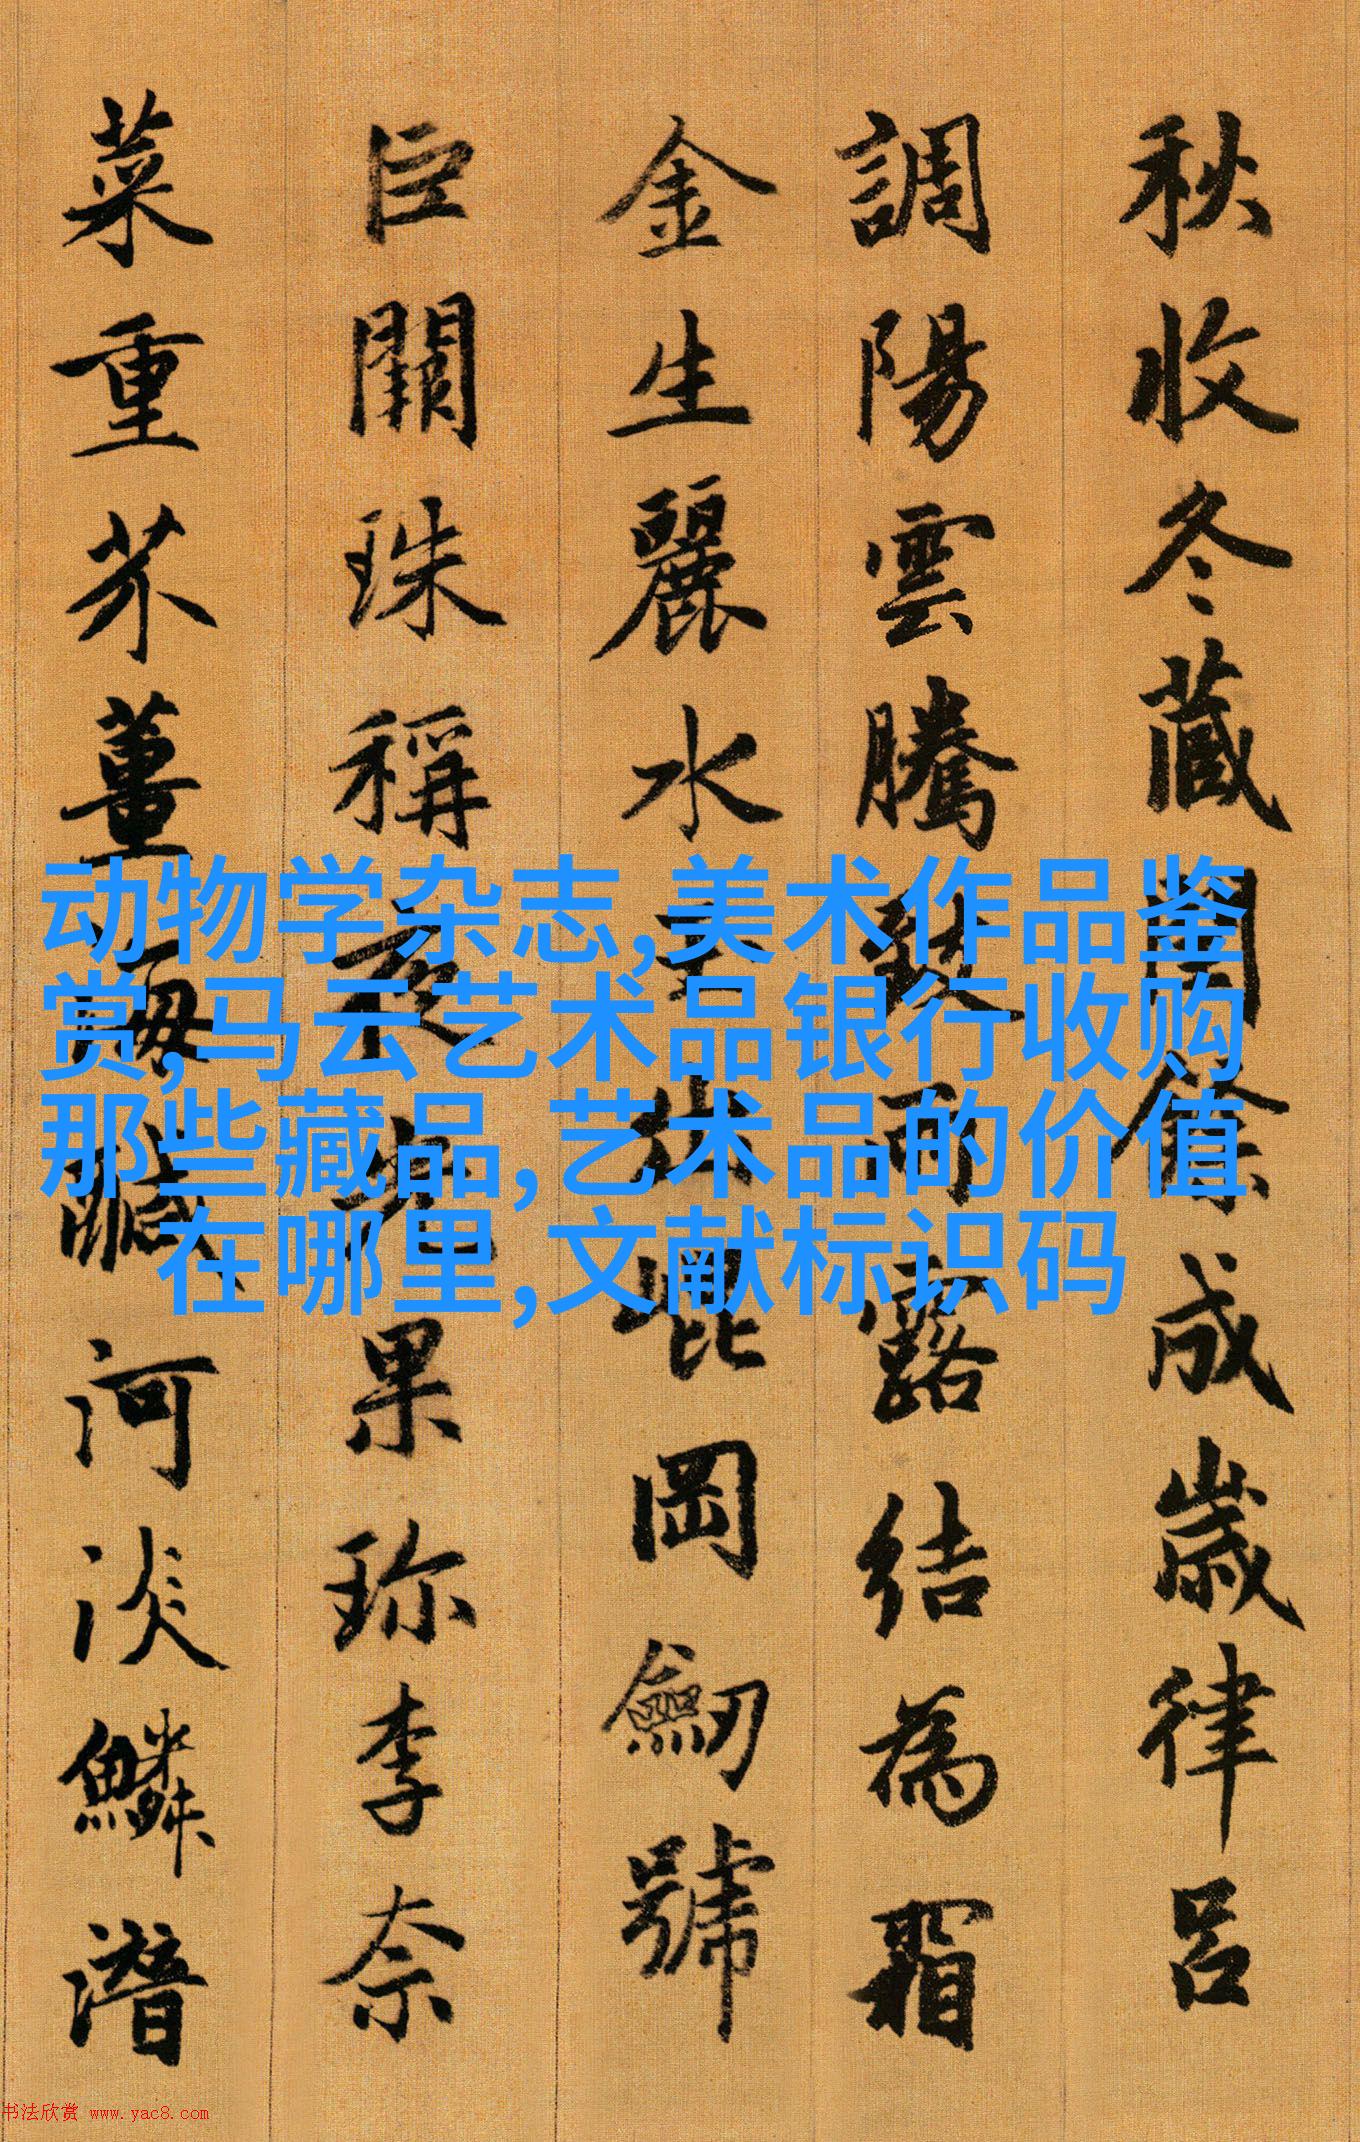 秋收冬藏閏餘成歲律呂
調陽雲騰致雨露結為霜
金生麗水玉出崐岡劒號
巨闕珠稱夜光果珎李奈
菜重芥薑海鹹河淡鱗潛
动物学杂志,美术作品鉴
赏,马云艺术品银行收购
那些藏品,艺术品的价值
在哪里,文献标识码
书法欣赏 www.yac8.com